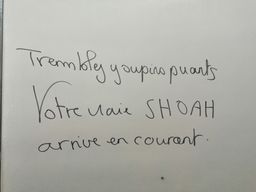 Tremblez youpins puants
Votre vraie SHOAH
arrive en courant.